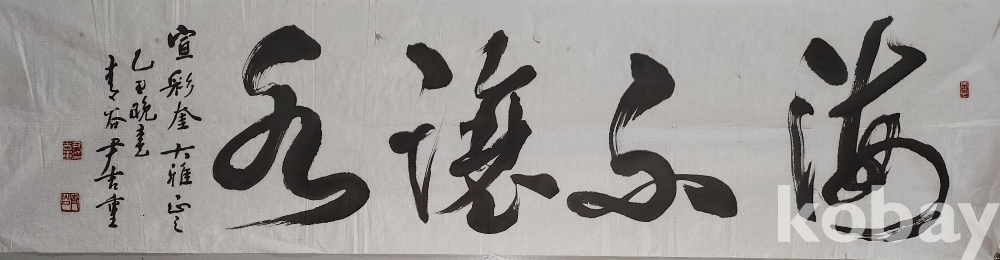 海不讓水
宣彩奎大雅正之
乙丑晚春
青谷尹吉重
kobay